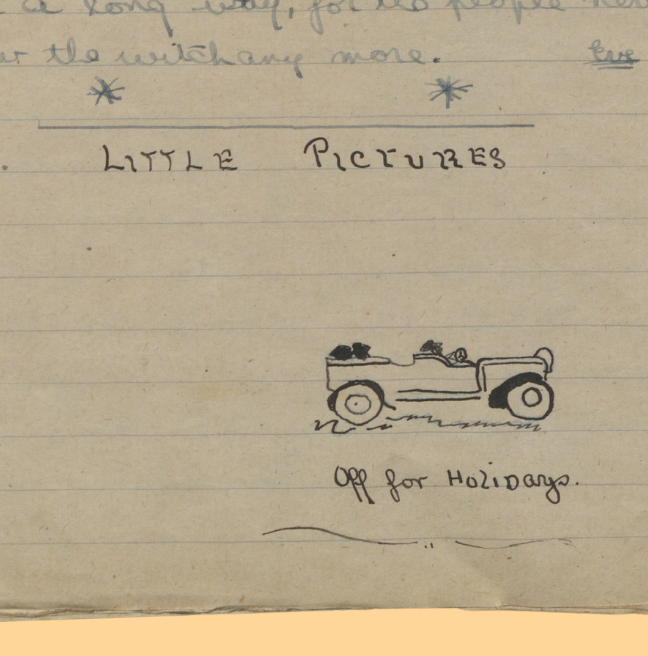 a long way, for no people
the witch any more.
LITTLE PICTURES
Off for HoliDays.